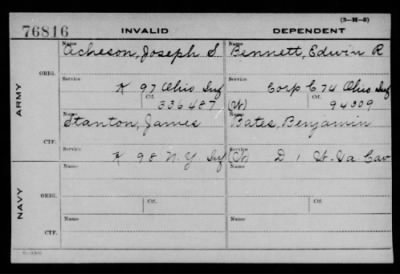 (3-III-2)
76816 INVALID DEPENDENT
Name Name
Acheson, Joseph S Bennett, Edwin R
ARMY
ORIG.
Service Service
K 97 Ohio Inf Corp C 74 Ohio Inf
Ctf. Ctf.
336487 (W) 94309
Name Name
Stanton, James Bates, Benjamin
CTF.
Service Service
K 98 N Y Inf (W) D 1 W. Va Cav
NAVY
ORIG.
Name Ctf. Name Ctf.
Service Service
CTF.
Name Name